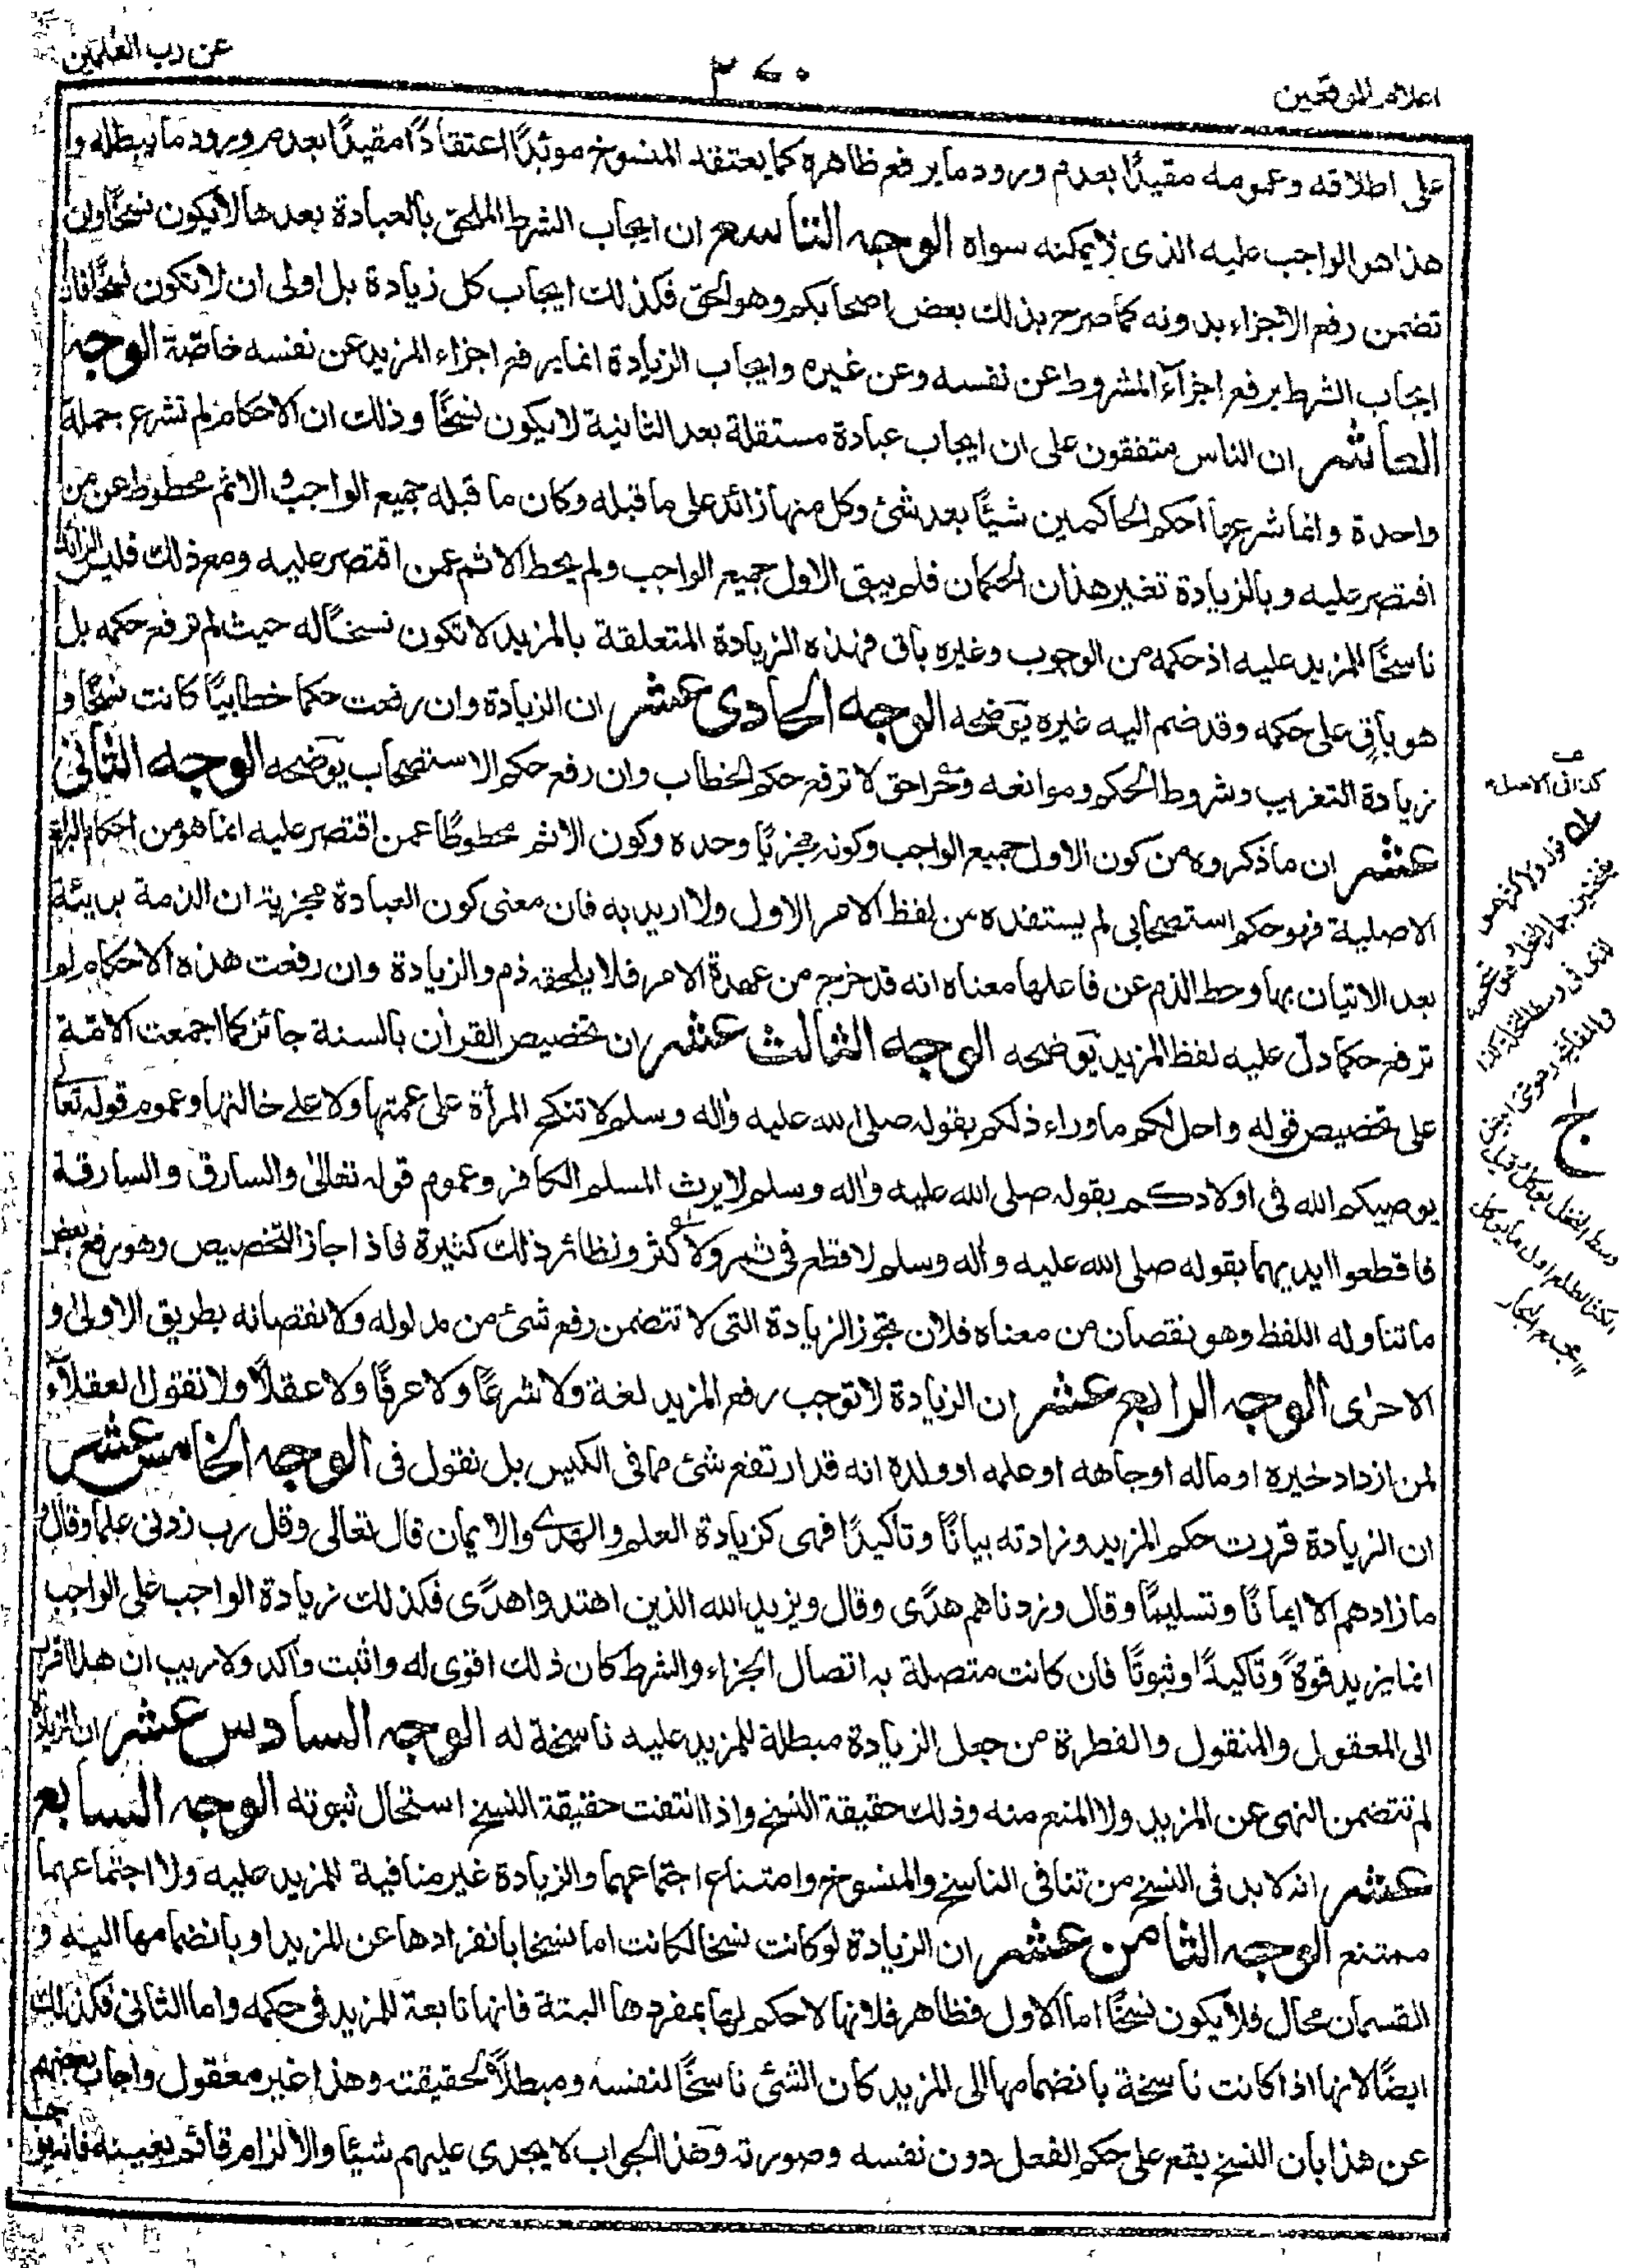 اعلام الموقعين
٣٧٠
عن رب العلمين
على اطلاقه وعمومه مقيدًا بعدم ورود ما يرفع ظاهره كما يعتقد المنسوخ موبدًا اعتقادًا مقيدًا بعدم ورود ما يبطله و
هذا هو الواجب عليه الذى لا يمكنه سواه الوجه التاسع ان ايجاب الشرط الملحق بالعبادة بعدها لا يكون نسخًا وان
تضمن رفع الاجزاء بدونه كما صرح بذلك بعض اصحابكم وهو الحق فكذلك ايجاب كل زيادة بل اولى ان لا تكون نسخًا فان
ايجاب الشرط يرفع اجزآء المشروط عن نفسه وعن غيره وايجاب الزيادة انما يرفع اجزاء المزيد عن نفسه خاصّة الوجه
العاشر ان الناس متفقون على ان ايجاب عبادة مستقلة بعد الثانية لا يكون نسخًا وذلك ان الاحكام لم تشرع جملة
واحدة وانما شرعها احكم الحاكمين شيئًا بعد شئ وكل منها زائد على ما قبله وكان ما قبله جميع الواجب والاثم محطوط عن من
اقتصر عليه وبالزيادة تغير هذان الحكمان فلم يبق الاول جميع الواجب ولم يحط الاثم عمن اقتصر عليه ومع ذلك فليس الزائد
ناسخًا للمزيد عليه اذ حكمه من الوجوب وغيره باق فهذه الزيادة المتعلقة بالمزيد لا تكون نسخًا له حيث لم ترفع حكمه بل
هو باقٍ على حكمه وقد ضم اليه غيره يوضحه الوجه الحادى عشر ان الزيادة وان رفعت حكما خطابيًا كانت نسخًا و
زيادة التغريب وشروط الحكم وموانعه وخراحق لا ترفع حكم الخطاب وان رفع حكم الاستصحاب يوضحه الوجه الثانى
عشر ان ما ذكروه من كون الاول جميع الواجب وكونه مجزيًا وحده وكون الاثم محطوطًا عمن اقتصر عليه انما هو من احكام البراءة
الاصلية فهو حكم استصحابى لم يستفده من لفظ الامر الاول ولا اريد به فان معنى كون العبادة مجزية ان الذمة بريئة
بعد الاتيان بها وحط الذم عن فاعلها معناه انه قد خرج من عهدة الامر فلا يلحقه ذم والزيادة وان رفعت هذه الاحكام لم
ترفع حكما دل عليه لفظ المزيد يوضحه الوجه الثالث عشر ان تخصيص القرآن بالسنة جائز كما اجمعت الامّة
على تخصيص قوله واحل لكم ما وراء ذلكم بقوله صلى الله عليه واله وسلم لا تنكح المرأة على عمتها ولا على خالتها وعموم قوله تعالى
يوصيكم الله فى اولادكم بقوله صلى الله عليه واله وسلم لا يرث المسلم الكافر وعموم قوله تعالى والسارق والسارقة
فاقطعوا ايديهما بقوله صلى الله عليه واله وسلم لا قطع فى ثمر ولا كثر ونظائر ذلك كثيرة فاذا جاز التخصيص وهو رفع بعض
ما تناوله اللفظ وهو نقصان من معناه فلان تجوز الزيادة التى لا تتضمن رفع شئ من مدلوله ولا نقصانه بطريق الاولى و
الاحرى الوجه الرابع عشر ان الزيادة لا توجب رفع المزيد لغة ولا شرعًا ولا عرفًا ولا عقلًا ولا تقول العقلآء
لمن ازداد خيره او ماله او جاهه او علمه او ولده انه قد ارتفع شئ مما فى الكيس بل نقول فى الوجه الخامس عشر
ان الزيادة قررت حكم المزيد وزادته بيانًا وتاكيدًا فهى كزيادة العلم والهدى والايمان قال تعالى وقل رب زدنى علما وقال و
ما زادهم الا ايمانًا وتسليمًا وقال وزدناهم هدًى وقال ويزيد الله الذين اهتدوا هدًى فكذلك زيادة الواجب على الواجب
انما يزيده قوةً وتاكيدًا وثبوتًا فان كانت متصلة به اتصال الجزاء والشرط كان ذلك اقوى له واثبت واكد ولا ريب ان هذا اقرب
الى المعقول والمنقول والفطرة من جعل الزيادة مبطلة للمزيد عليه ناسخة له الوجه السادس عشر ان الزيادة
لم تتضمن النهى عن المزيد ولا المنع منه وذلك حقيقة النسخ واذا انتفت حقيقة النسخ استحال ثبوته الوجه السابع
عشر انه لا بد فى النسخ من تنافى الناسخ والمنسوخ وامتناع اجتماعهما والزيادة غير منافية للمزيد عليه ولا اجتماعهما
ممتنع الوجه الثامن عشر ان الزيادة لو كانت نسخا لكانت اما نسخا بانفرادها عن المزيد او بانضمامها اليه و
القسمان محال فلا يكون نسخًا اما الاول فظاهر فلانها لا حكم لها بمفردها البتة فانها تابعة للمزيد فى حكمه واما الثانى فكذلك
ايضًا لانها اذا كانت ناسخة بانضمامها الى المزيد كان الشئ ناسخًا لنفسه ومبطلًا لحقيقته وهذا غير معقول واجاب بعضهم
عن هذا بان النسخ يقع على حكم الفعل دون نفسه وصورته وهذا الجواب لا يجدى عليهم شيئا والالزام قائم بعينه فانه
كذا فى الاصل
قوله ولا كثر هو
بفتحتين جمار النخل وهو شحمه
الذى فى وسط النخلة كذا